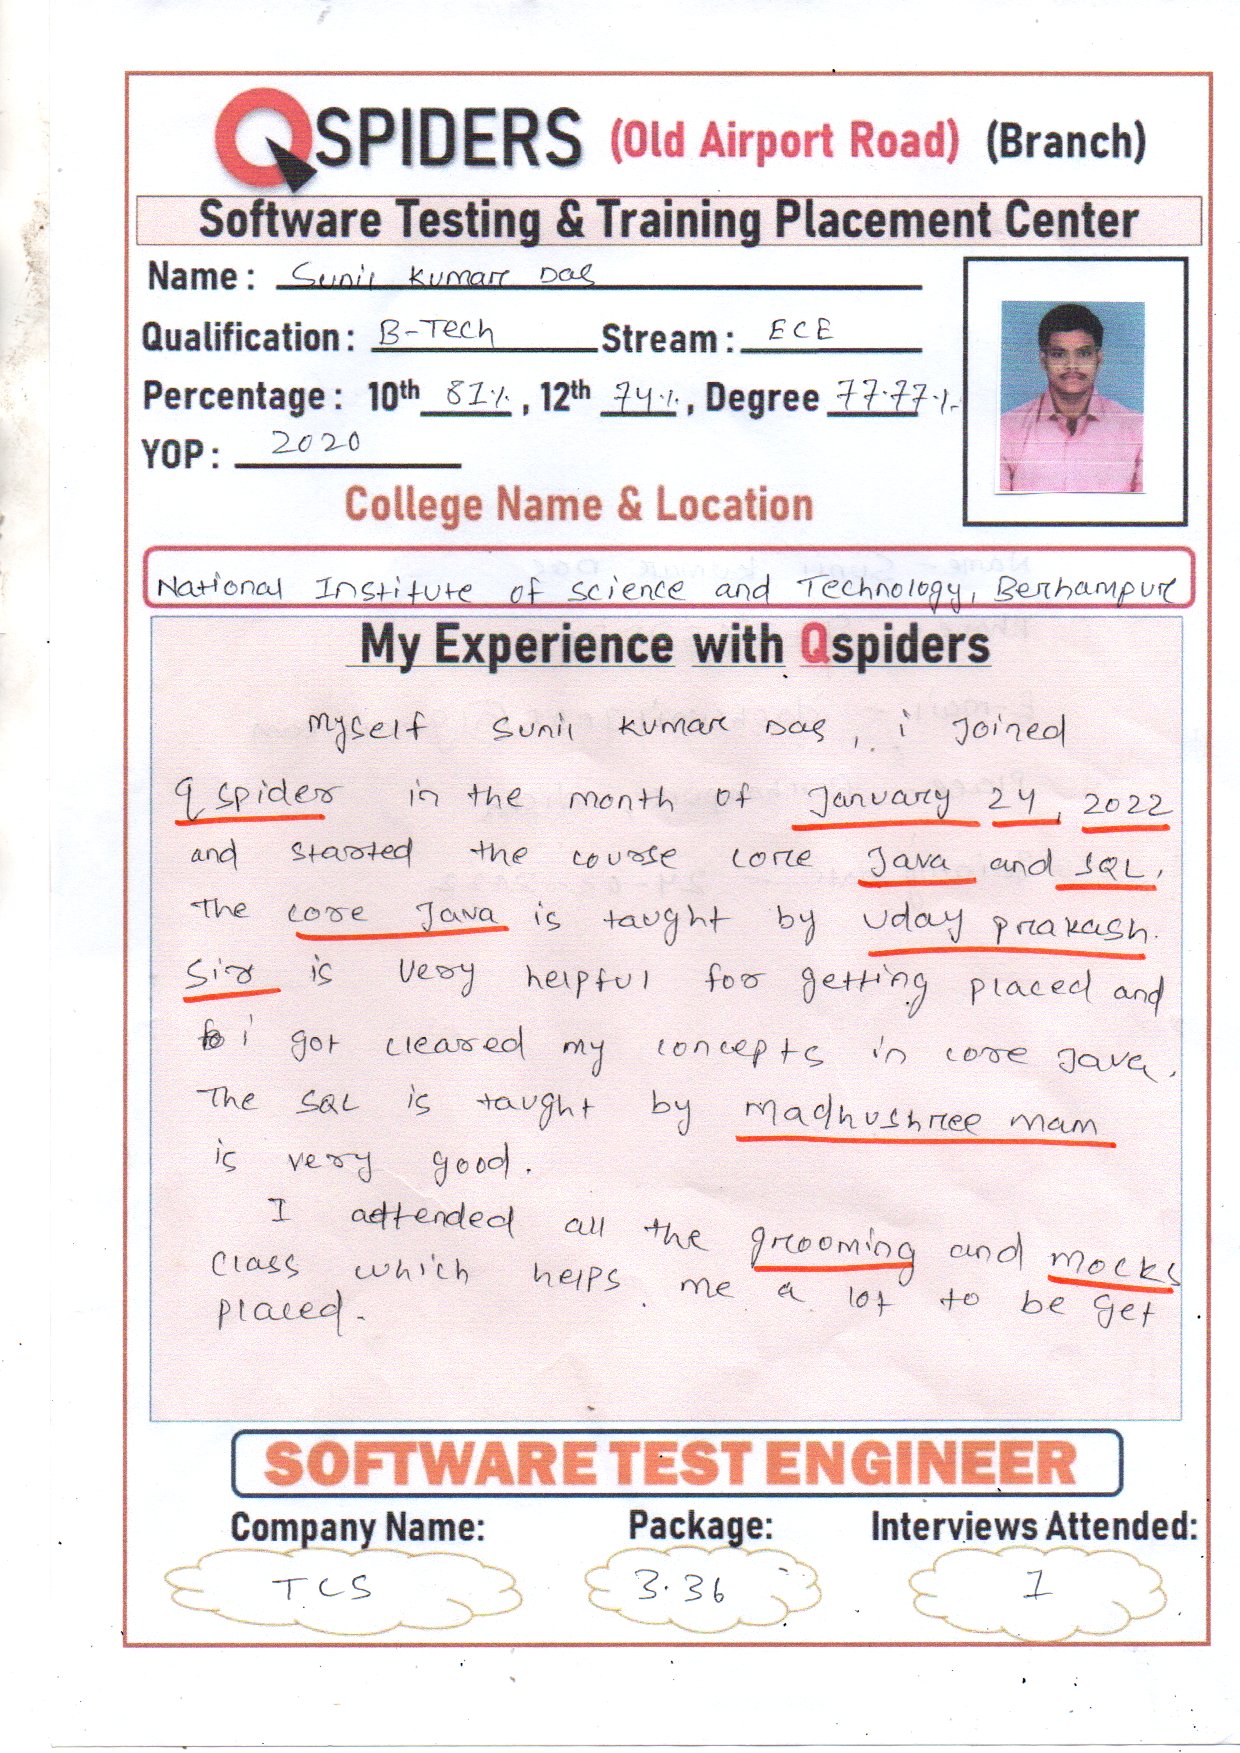 QSPIDERS (Old Airport Road) (Branch)
Software Testing & Training Placement Center
Name : Sunil Kumar Das
Qualification : B-Tech Stream : ECE
Percentage : 10th 81%, 12th 74%, Degree 77.77%
YOP : 2020
College Name & Location
National Institute of science and Technology, Berhampur
My Experience with Qspiders
Myself Sunil Kumar Das, i Joined
Qspider in the month of January 24, 2022
and started the course core Java and SQL.
The core Java is taught by Uday prakash.
Sir is very helpful for getting placed and
i got cleared my concepts in core Java.
The SQL is taught by Madhushree mam
is very good.
I attended all the grooming and mocks
class which helps me a lot to be get
placed.
SOFTWARE TEST ENGINEER
Company Name: Package: Interviews Attended:
TCS 3.36 1